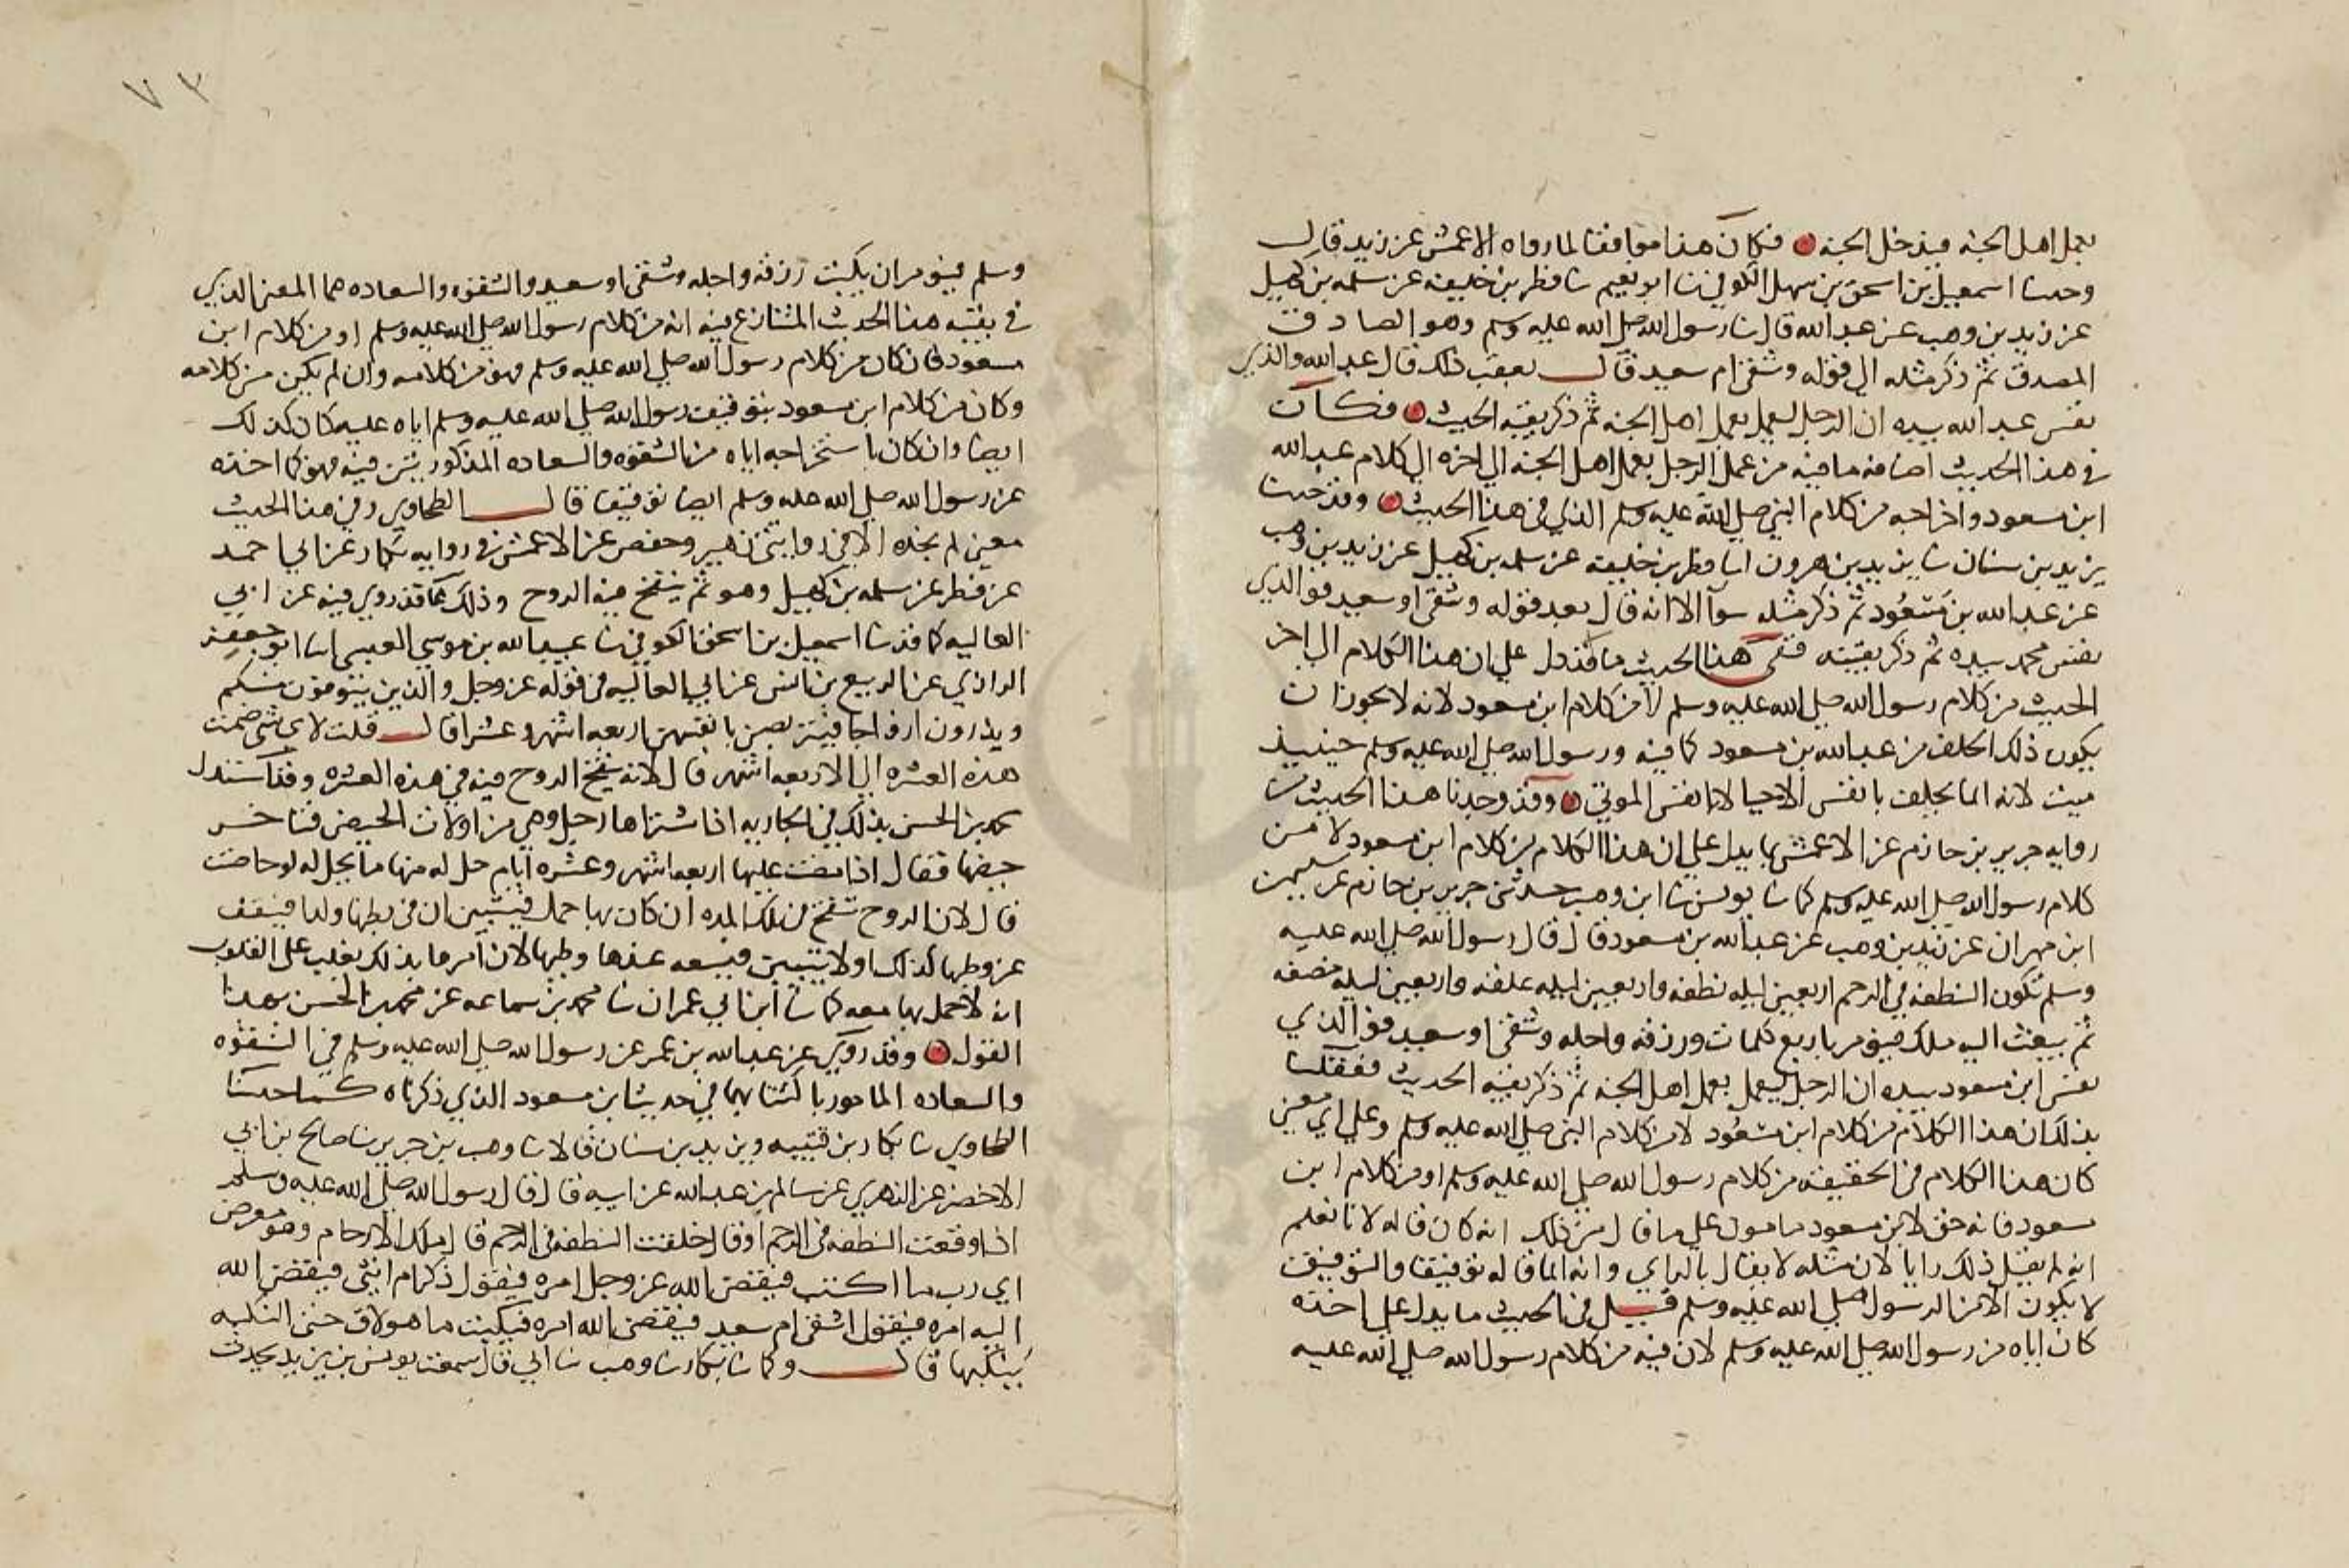 بعمل اهل الجنة فيدخل الجنة فكان هذا موافقا لما رواه الاعمش عن زيد قال
وحدثنا اسمعيل بن اسحق بن سهل الكوفي ثنا ابو نعيم ثنا فطر بن خليفة عن سلمه بن كهيل
عن زيد بن وهب عن عبد الله قال ثنا رسول الله صلى الله عليه وسلم وهو الصادق
المصدق ثم ذكر مثله الى قوله وشقي ام سعيد قال بعقب ذلك قال عبد الله والذي
نفس عبد الله بيده ان الرجل ليعمل بعمل اهل الجنة ثم ذكر بقية الحديث فكان
في هذا الحديث اضافة ما فيه من عمل الرجل بعمل اهل الجنة الى اخره الى كلام عبد الله
ابن مسعود واخراجه من كلام النبي صلى الله عليه وسلم الذي في هذا الحديث وقد حدثنا
يزيد بن سنان ثنا يزيد بن هرون انا فطر بن خليفة عن سلمه بن كهيل عن زيد بن وهب
عن عبد الله بن مسعود ثم ذكر مثله سوآ الا انه قال بعد قوله وشقي او سعيد فوالذي
نفس محمد بيده ثم ذكر بقيته ففي هذا الحديث ما قد دل على ان هذا الكلام الى اخر
الحديث من كلام رسول الله صلى الله عليه وسلم لا من كلام ابن مسعود لانه لا يجوز ان
يكون ذلك الحلف من عبد الله بن مسعود كما فيه ورسول الله صلى الله عليه وسلم حينيذ
ميت لانه انما يحلف بانفس الاحيا لا بانفس الموتى وقد وجدنا هذا الحديث
روايه جرير بن حازم عن الاعمش بما يدل على ان هذا الكلام من كلام ابن مسعود لا من
كلام رسول الله صلى الله عليه وسلم كما ثنا يونس ثنا ابن وهب حدثني جرير بن حازم عن سليمن
ابن مهران عن زيد بن وهب عن عبد الله بن مسعود قال قال رسول الله صلى الله عليه
وسلم تكون النطفه في الرحم اربعين ليله نطفه واربعين ليله علقه واربعين ليله مضغه
ثم يبعث اليه ملك فيومر باربع كلمات ورزقه واجله وشقي او سعيد فوالذي
نفس ابن مسعود بيده ان الرجل ليعمل بعمل اهل الجنة ثم ذكر بقية الحديث فعقلنا
بذلك ان هذا الكلام من كلام ابن مسعود لا من كلام النبي صلى الله عليه وسلم وعلى اي معنى
كان هذا الكلام في الحقيقه من كلام رسول الله صلى الله عليه وسلم او من كلام ابن
مسعود فانه حق لابن مسعود مامون على ما قال من ذلك انه كان قاله لانا نعلم
انه لم يقبل ذلك رايا لان مثله لا يقال بالراي وانه انما قاله توقيفا والتوقيف
لا يكون الا من الرسول صلى الله عليه وسلم قيل في الحديث ما يدل على اخذه
كان اياه من رسول الله صلى الله عليه وسلم لان فيه من كلام رسول الله صلى الله عليه
٧٣
وسلم فيومر ان يكتب رزقه واجله وشقي او سعيد والشقوه والسعاده هما المعنى الذي
في بقيه هذا الحديث المتنازع فيه انه من كلام رسول الله صلى الله عليه وسلم او من كلام ابن
مسعود فان كان من كلام رسول الله صلى الله عليه وسلم فهو من كلامه وان لم يكن من كلامه
وكان من كلام ابن مسعود بتوقيف رسول الله صلى الله عليه وسلم اياه عليه كان كذلك
ايضا وان كان باستخراجه اياه من الشقوه والسعاده المذكورتين فيه فهو كما اخذه
عن رسول الله صلى الله عليه وسلم ايضا توقيفا قال الطحاوي وفي هذا الحديث
معنى لم نجده الا في روايتي زهير وحفص عن الاعمش في روايه بكار عن ابي احمد
عن فطر عن سلمه بن كهيل وهو ثم ينفخ فيه الروح وذلك مما قد روي فيه عن ابي
العاليه كما قد ثنا اسمعيل بن اسحق الكوفي ثنا عبيد الله بن موسى العبسي انا ابو جعفر
الرازي عن الربيع بن انس عن ابي العاليه في قوله عز وجل والذين يتوفون منكم
ويذرون ازواجا يتربصن بانفسهن اربعه اشهر وعشرا قال قلت لاي شي ضمت
هذه العشره الى الاربعه اشهر قال لانه ينفخ الروح فيه في هذه العشره وقد استدل
محمد بن الحسن بذلك في الجاريه اذا اشتراها رجل وهي من اولات الحيض فتاخر
حيضها فقال اذا مضت عليها اربعه اشهر وعشره ايام حل له منها ما يحل له لو حاضت
قال لان الروح تنفخ في تلك المده ان كان بها حمل فيتبين ان في بطنها ولدا فيقف
عن وطيها لذلك او لا يتبين فيسعه عندها وطيها لان امرها بذلك يغلب على القلوب
انه لا حمل بها معه كما ثنا ابن ابي عمران ثنا محمد بن سماعه عن محمد بن الحسن بهذا
القول وقد روي عن عبد الله بن عمر عن رسول الله صلى الله عليه وسلم في الشقوه
والسعاده المامور باكتتابهما في حديث ابن مسعود الذي ذكرناه كما حدثنا
الطحاوي ثنا بكار بن قتيبه ويزيد بن سنان قالا ثنا وهب بن جرير ثنا صالح بن ابي
الاخضر عن الزهري عن سالم بن عبد الله عن ابيه قال قال رسول الله صلى الله عليه وسلم
اذا وقعت النطفه في الرحم او قال خلقت النطفه في الرحم قال ملك الارحام وهو معرض
اي رب ما اكتب فيقضي الله عز وجل امره فيقول ذكر ام انثى فيقضي الله
اليه امره فيقول اشقي ام سعيد فيقضي الله امره فيكتب ما هو لاق حتى النكبه
ينكبها قال وكما ثنا بكار ثنا وهب ثنا ابي قال سمعت يونس بن يزيد يحدث